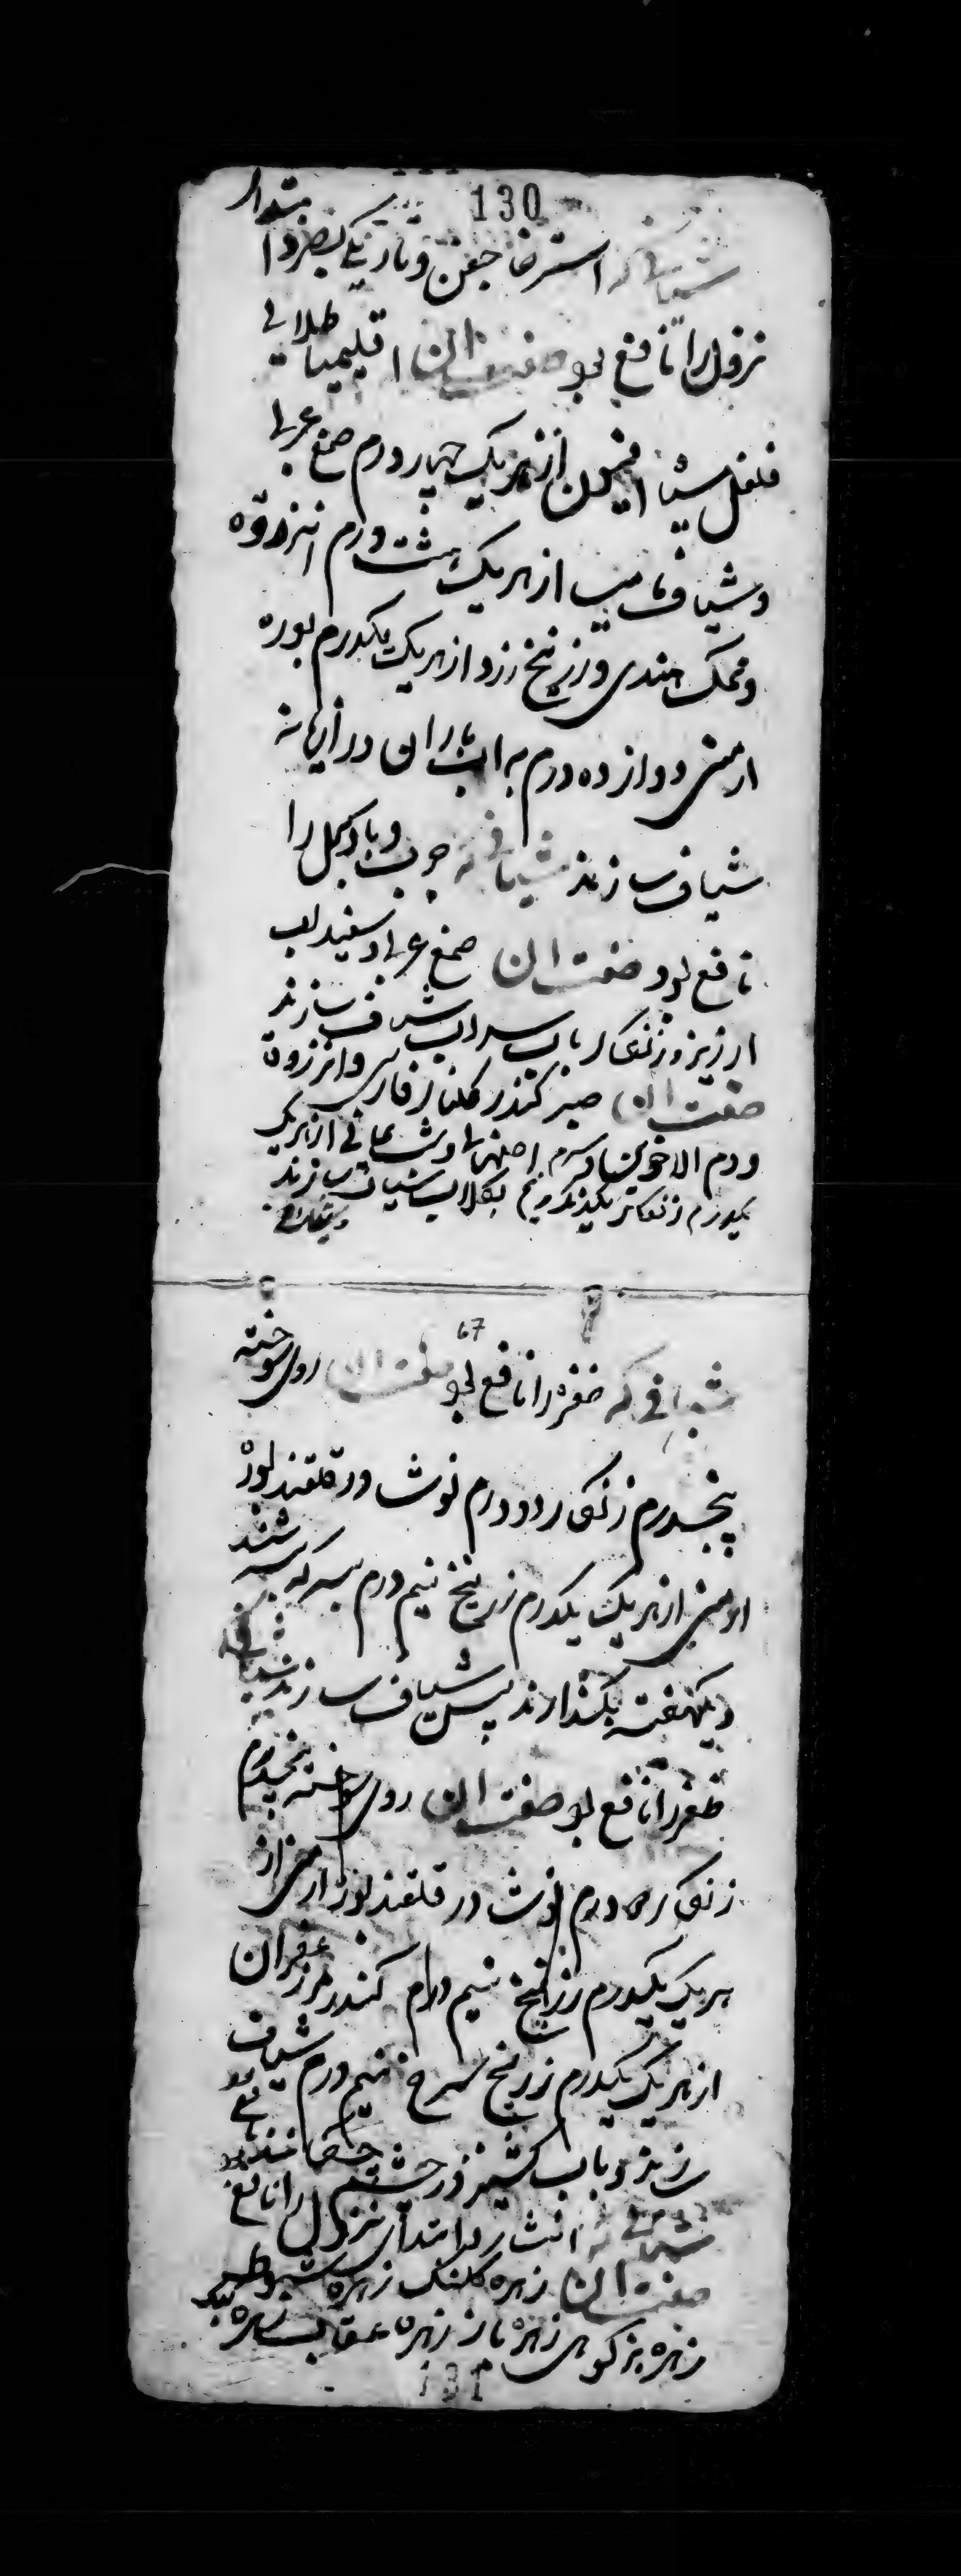 130
شیافی که استرخا جفن و تاریکی بصر و ابتداء
نزول را نافع بود صفت ان اقلیمیا طلائی
فلفل سیاه افیون از هر یک چهار درم صمغ عربی
و شیاف مامیثا از هر یک هشت درم انزروت
و نمک هندی و زرنیخ زرد از هر یک یکدرم بوره
ارمنی دوازده درم به اب باران در
شیاف سازند شیافی که جرب و را
نافع بود صفت ان صمغ عربی و سفیداب
ارزیز و زنگار باب سداب شیاف سازند
صفت ان صبر کندر گلنار فارسی و انزروت
و دم الاخوین و سرمه اصفهانی و از هر یک
یکدرم بگلاب شیاف سازند
67
شیافی که ظفره را نافع بود صفت ان روی سوخته
پنجدرم زنگار دو درم نوشادر قلقند بوره
ارمنی از هر یک یکدرم زرنیخ نیم درم بسرکه
و یکهفته بگذارند پس شیاف سازند شیافی که
ظفره را نافع بود صفت ان روی سوخته پنجدرم
زنگار درم نوشادر قلقند بوره ارمنی از
هر یک یکدرم زرنیخ نیم درم کندر زعفران
از هر یک یکدرم زرنیخ سرخ نیم درم شیاف
سازند و باب گشنیز در چشم چکانند
شیافی که انتشار و ابتدای نزول را نافع بود
صفت ان زهره کلنگ زهره
زهره بز کوهی زهره باز زهره عقاب زهره کبک
131